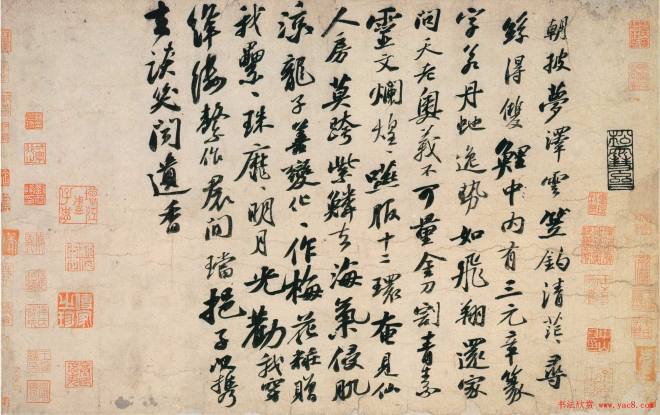 朝披夢澤雲笠釣清茫〻尋
絲得雙鯉中內有三元章篆
字若丹虵逸勢如飛翔還家
問天老奧義不可量金刀割青素
靈文爛煌〻嚥服十二環奄見仙
人房莫跨紫鱗去海氣侵肌
涼龍子善變化〻作梅花粧贈
我纍〻珠靡〻明月光勸我穿
絳縷繫作裾間璫挹子以攜
去談笑聞遺香
书法欣赏 www.yac8.com